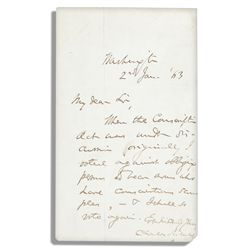 Washington
2nd Jan. '63
My dear Sir,
When the Conscription
Act was under dis-
cussion originally, I
voted against obliging
persons to bear arms who
have conscientious scru-
ples, — & I shall so
vote again.
Charles Sumner